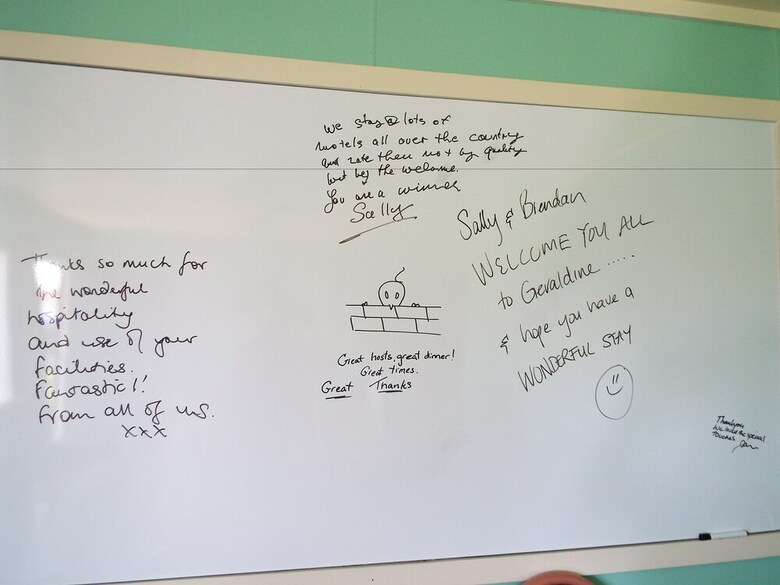 We stay @ lots of
motels all over the country
and rate them not by quality
but by the welcome.
You are a winner
Sally
Sally & Brendan
WELCOME YOU ALL
to Geraldine .....
& hope you have a
WONDERFUL STAY
Thanks so much for
the wonderful
hospitality
and use of your
facilities.
Fantastic!!
from all of us.
xxx
Great hosts, great dinner!
Great times.
Great Thanks
Thankyou
We loved the special
touches